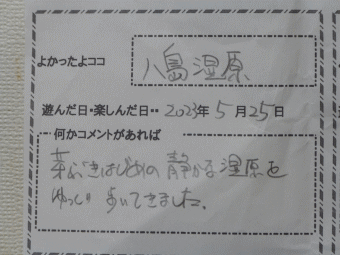 よかったよココ
八島湿原
遊んだ日・楽しんだ日・・2023年5月25日
何かコメントがあれば
芽ぶきはじめの静かな湿原を
ゆっくり歩いてきました.